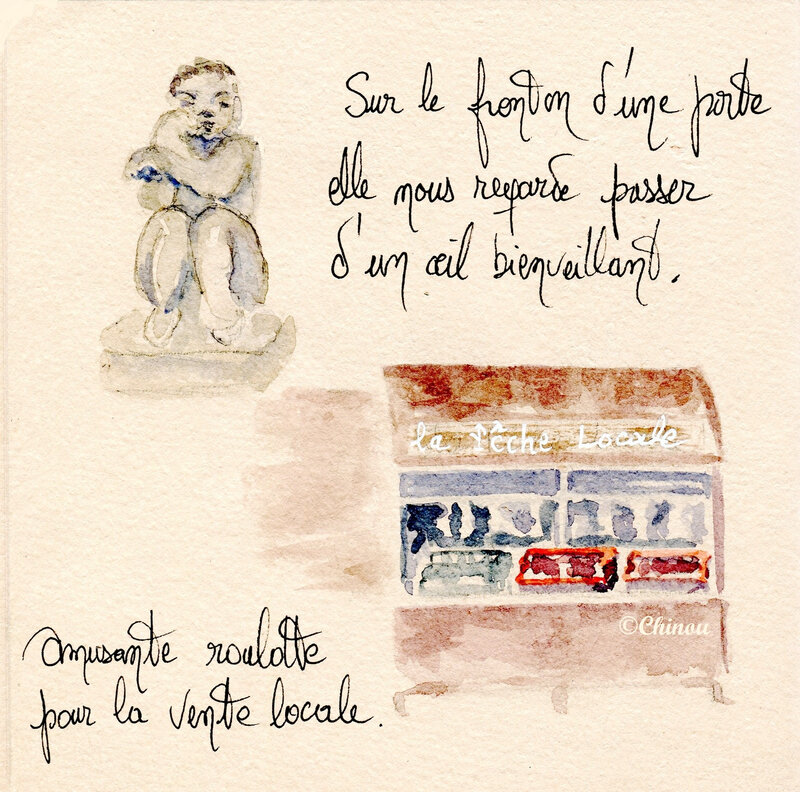 Sur le fronton d'une porte
elle nous regarde passer
d'un œil bienveillant.
la Pêche Locale
©Chinou
amusante roulotte
pour la vente locale.